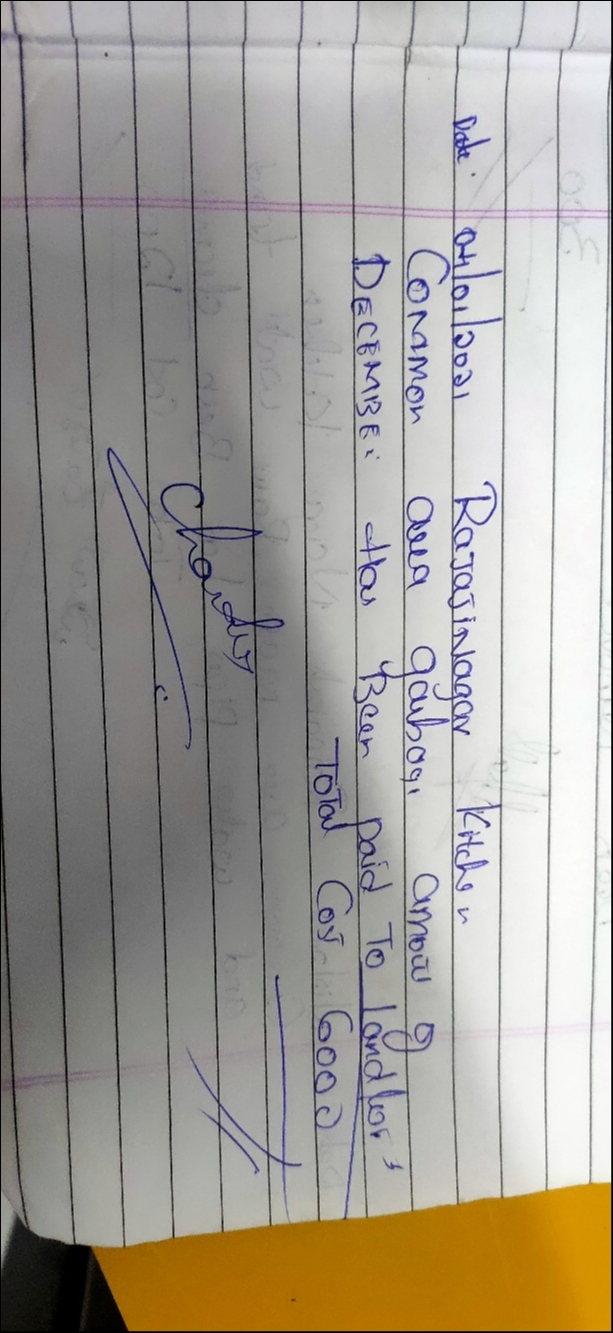 Date: 04/01/2021 Rajajinagar Kitchen
Common area garbage amou g
December Has Been paid To landlord
Total Cos 6000
Chandu